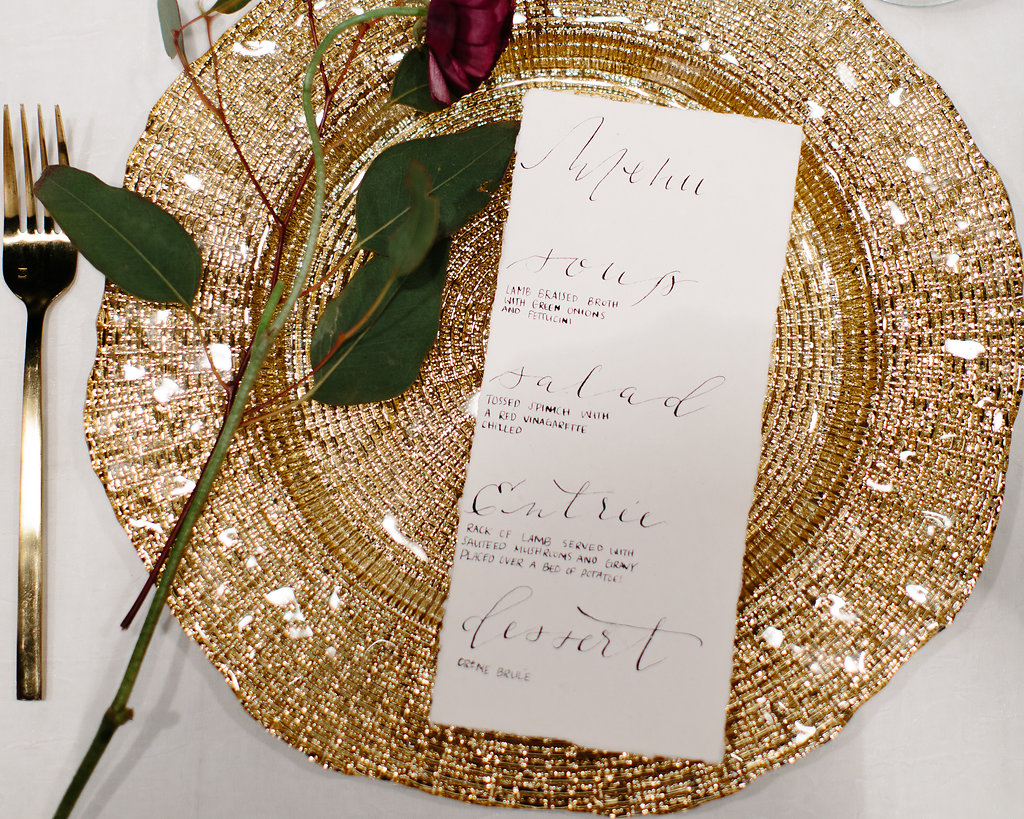 Menu
soup
LAMB BRAISED BROTH
WITH GREEN ONIONS
AND FETTUCINI
salad
TOSSED SPINICH WITH
A RED VINAGARETTE
CHILLED
Entrie
RACK OF LAMB SERVED WITH
SAUTEED MUSHROOMS AND GRAVY
PLACED OVER A BED OF POTATOES
dessert
CREME BRULE